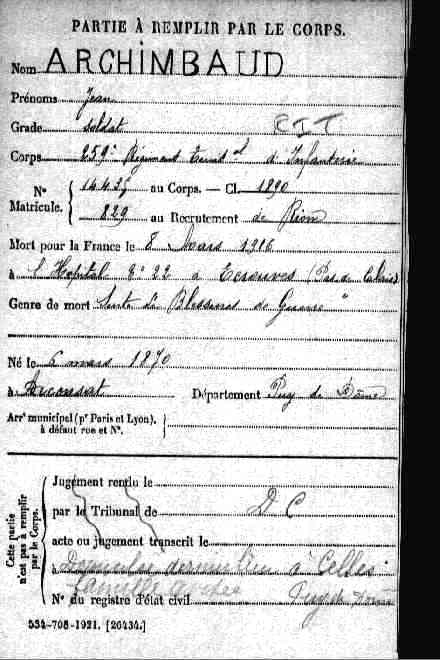 PARTIE À REMPLIR PAR LE CORPS.
Nom ARCHIMBAUD
Prénoms Jean
Grade soldat RIT
Corps 259e Régiment Territal d'Infanterie
N° Matricule. 14439 au Corps. — Cl. 1890
829 au Recrutement de Riom
Mort pour la France le 8 Mars 1916
à l'Hopital n° 22 à Ecrouves (Pas de Calais)
Genre de mort Suite de Blessures de Guerre
Né le 5 mars 1870
à Arconsat Département Puy de Dôme
Arrt municipal (pr Paris et Lyon), à défaut rue et N°.
Cette partie n'est pas à remplir par le Corps.
Jugement rendu le
par le Tribunal de D C
acte ou jugement transcrit le
à Domicilié dernier lieu à Celles
N° du registre d'état civil Puy de Dome
534-708-1921. [26434.]